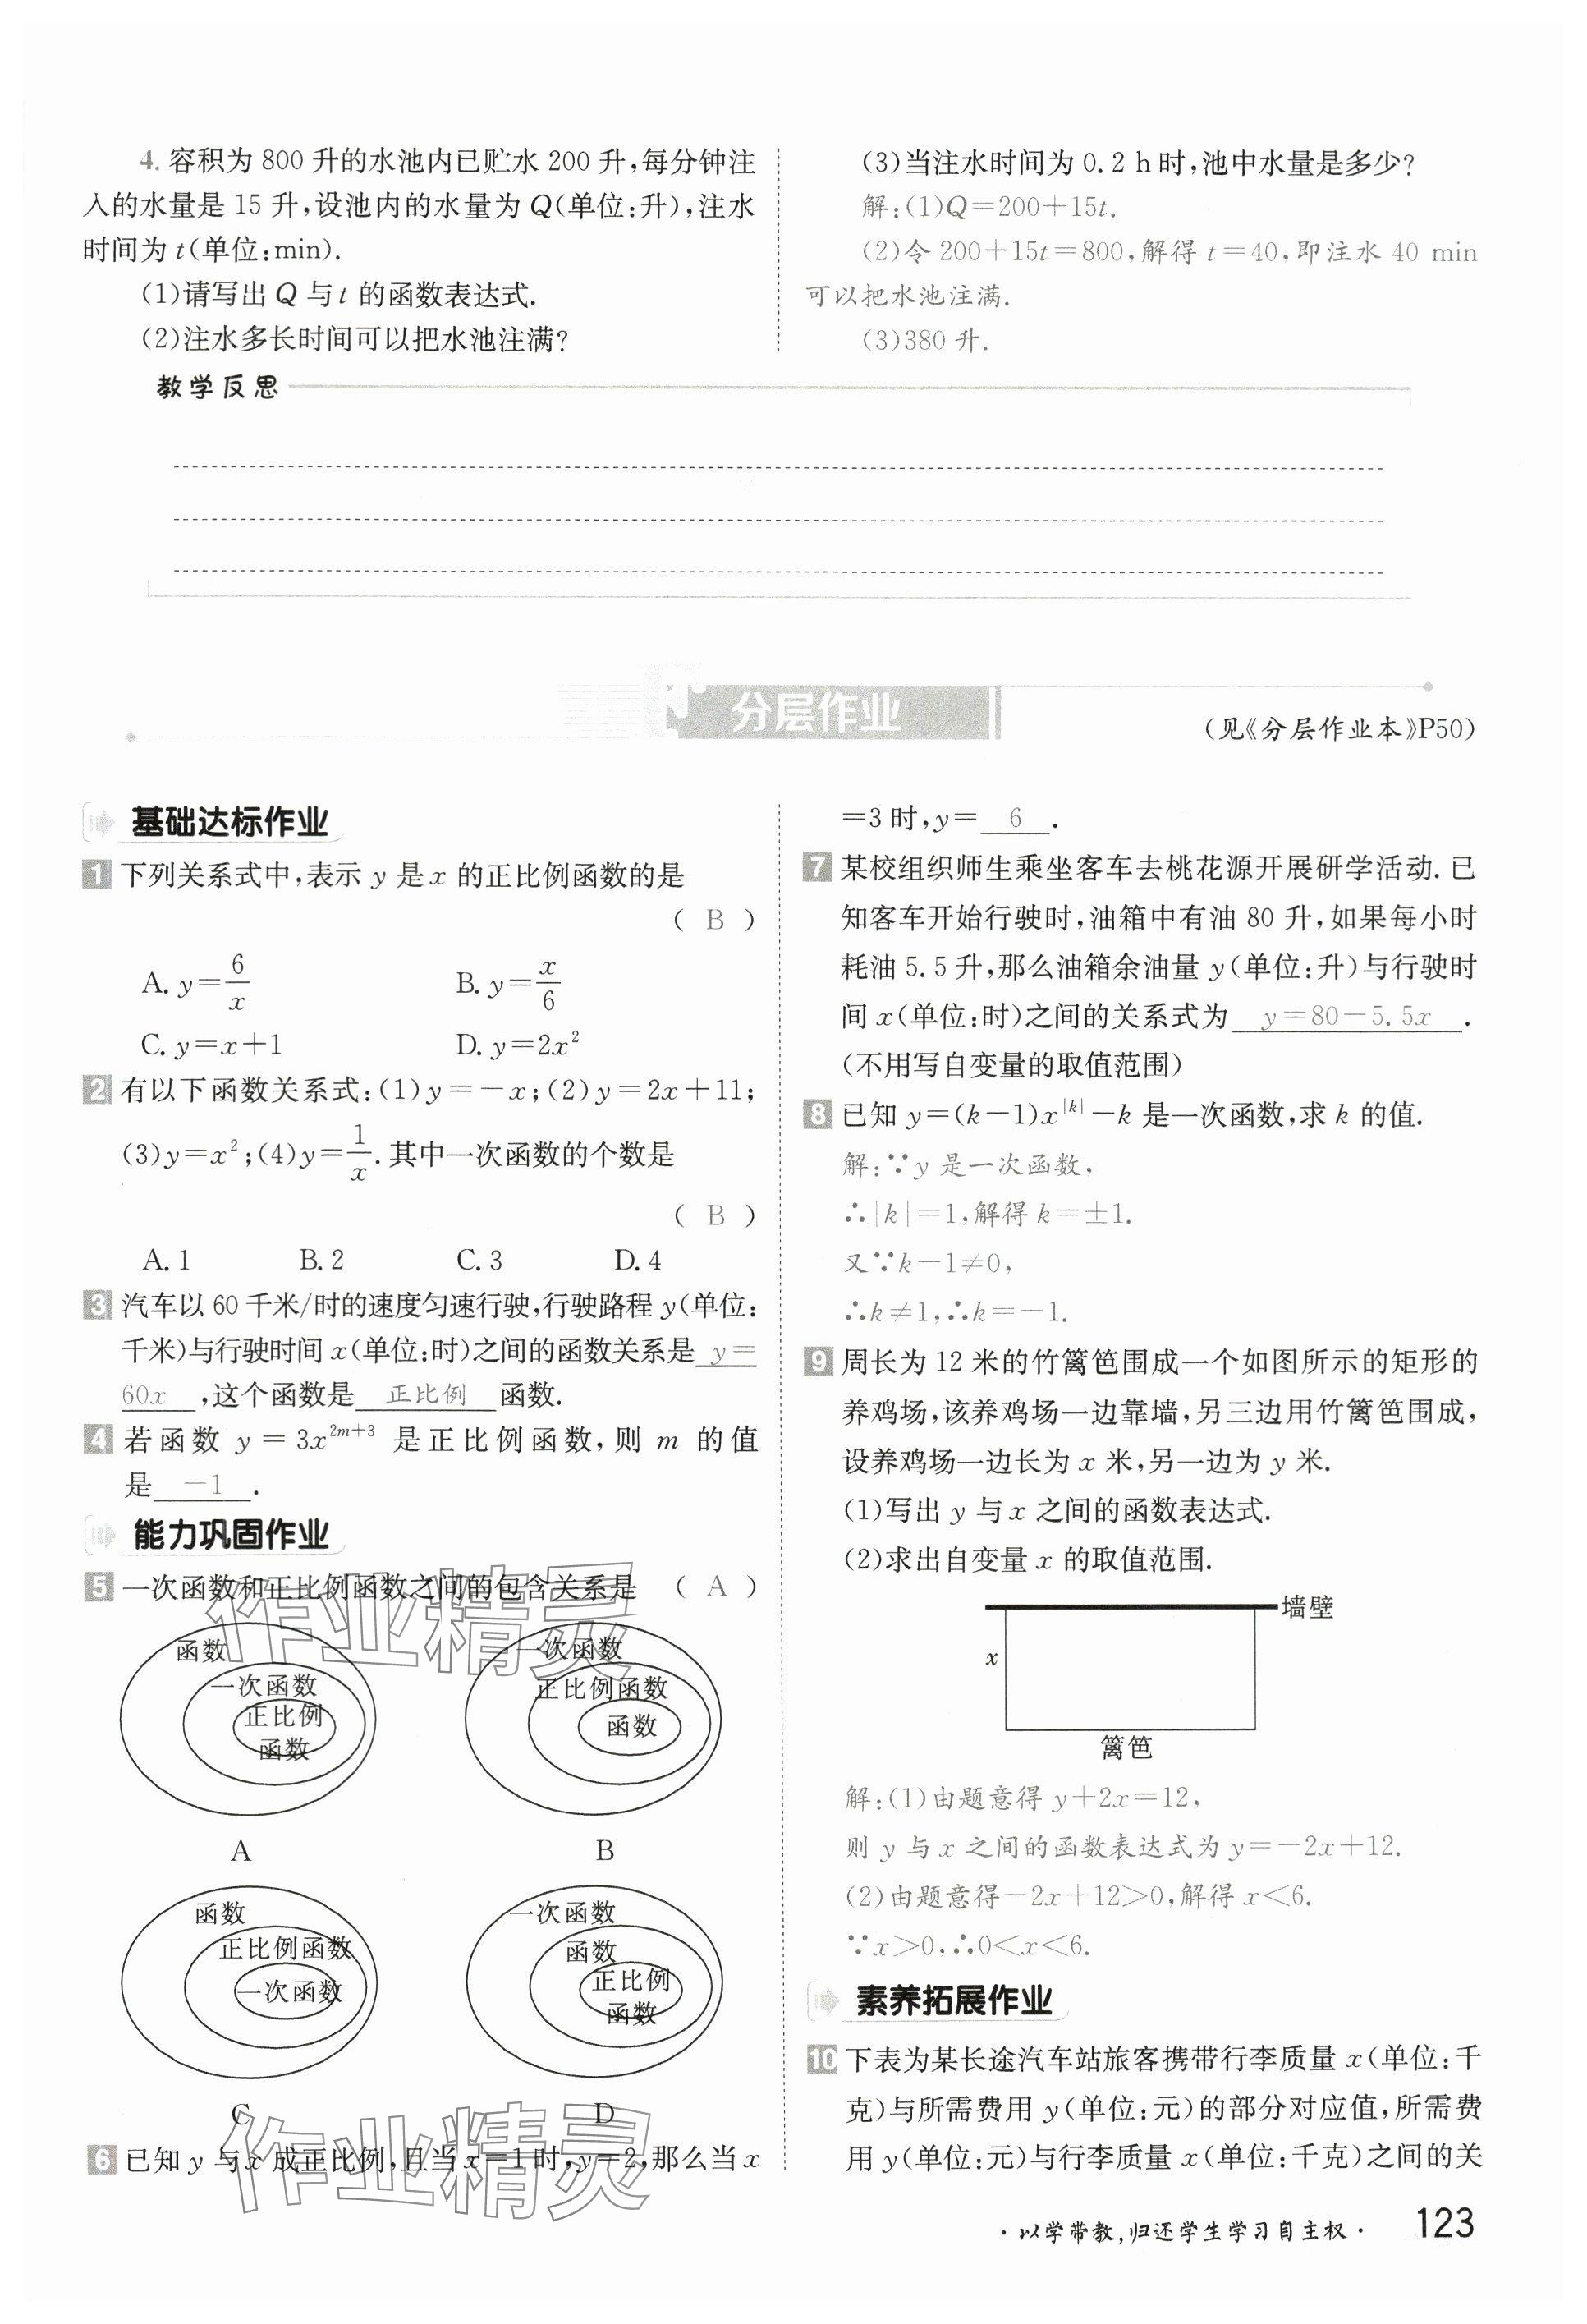 4. 容积为 800 升的水池内已贮水 200 升,每分钟注
入的水量是 15 升,设池内的水量为 Q(单位:升),注水
时间为 t(单位:min).
(1)请写出 Q 与 t 的函数表达式.
(2)注水多长时间可以把水池注满?
(3)当注水时间为 0.2 h 时,池中水量是多少?
解:(1)Q=200+15t.
(2)令 200+15t=800,解得 t=40,即注水 40 min
可以把水池注满.
(3)380 升.
教学反思
分层作业
(见《分层作业本》P50)
基础达标作业
1 下列关系式中,表示 y 是 x 的正比例函数的是
( B )
A. y=6/x B. y=x/6
C. y=x+1 D. y=2x²
2 有以下函数关系式:(1)y=-x;(2)y=2x+11;
(3)y=x²;(4)y=1/x.其中一次函数的个数是
( B )
A. 1 B. 2 C. 3 D. 4
3 汽车以 60 千米/时的速度匀速行驶,行驶路程 y(单位:
千米)与行驶时间 x(单位:时)之间的函数关系是 y=
60x ,这个函数是 正比例 函数.
4 若函数 y=3x^{2m+3} 是正比例函数,则 m 的值
是 -1 .
能力巩固作业
5 一次函数和正比例函数之间的包含关系是 ( A )
函数
一次函数
正比例
函数
A
一次函数
正比例函数
函数
B
函数
正比例函数
一次函数
C
一次函数
函数
正比例
函数
D
6 已知 y 与 x 成正比例,且当 x=1 时,y=2,那么当 x
=3 时,y= 6 .
7 某校组织师生乘坐客车去桃花源开展研学活动. 已
知客车开始行驶时,油箱中有油 80 升,如果每小时
耗油 5.5 升,那么油箱余油量 y(单位:升)与行驶时
间 x(单位:时)之间的关系式为 y=80-5.5x .
(不用写自变量的取值范围)
8 已知 y=(k-1)x^{|k|}-k 是一次函数,求 k 的值.
解:∵y 是一次函数,
∴|k|=1,解得 k=±1.
又∵k-1≠0,
∴k≠1,∴k=-1.
9 周长为 12 米的竹篱笆围成一个如图所示的矩形的
养鸡场,该养鸡场一边靠墙,另三边用竹篱笆围成,
设养鸡场一边长为 x 米,另一边为 y 米.
(1)写出 y 与 x 之间的函数表达式.
(2)求出自变量 x 的取值范围.
墙壁
x
篱笆
解:(1)由题意得 y+2x=12,
则 y 与 x 之间的函数表达式为 y=-2x+12.
(2)由题意得-2x+12>0,解得 x<6.
∵x>0,∴0<x<6.
素养拓展作业
10 下表为某长途汽车站旅客携带行李质量 x(单位:千
克)与所需费用 y(单位:元)的部分对应值,所需费
用 y(单位:元)与行李质量 x(单位:千克)之间的关
·以学带教,归还学生学习自主权· 123
作业精灵
作业精灵